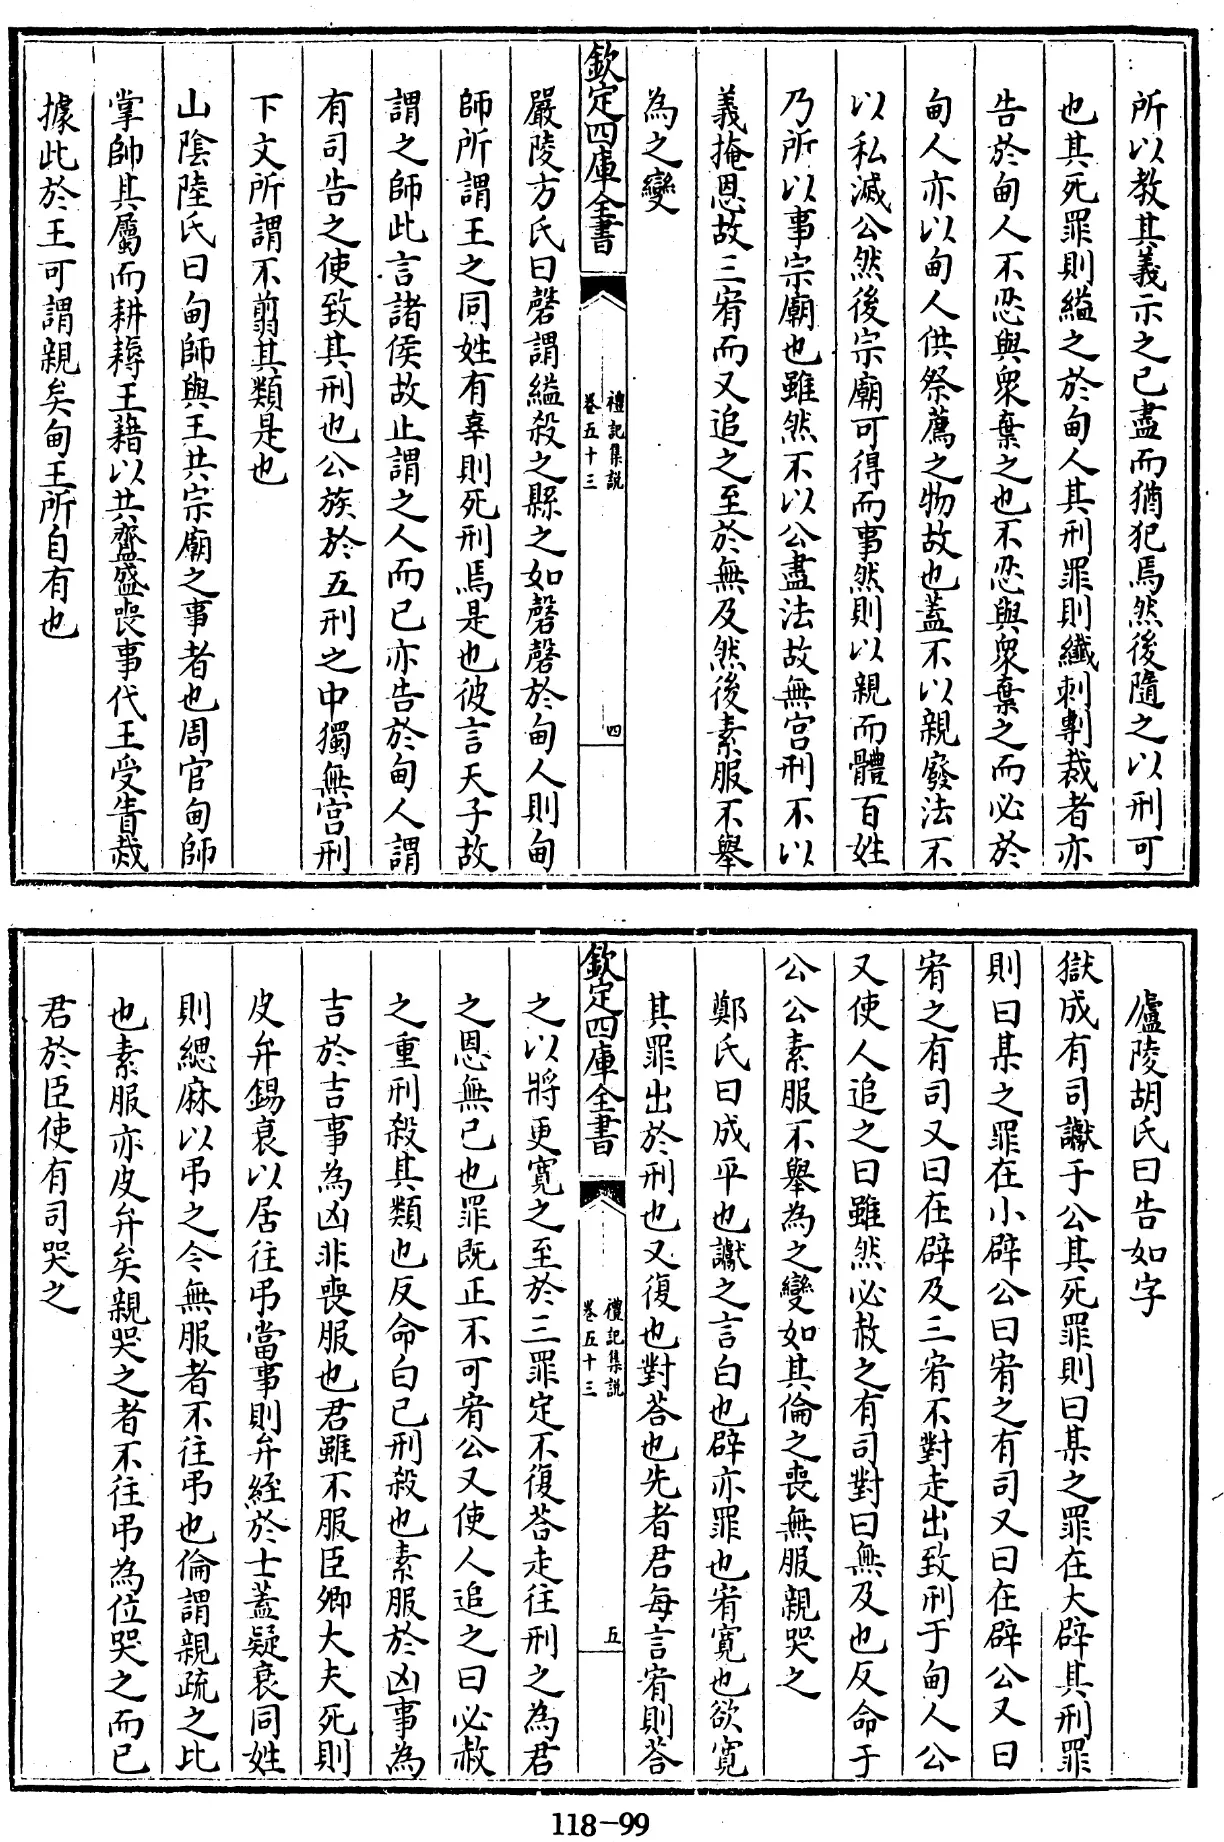 所以教其義示之已盡而猶犯焉然後隨之以刑可
也其死罪則縊之於甸人其刑罪則纎刺剸裁者亦
告於甸人不忍與衆棄之也不忍與衆棄之而必於
甸人亦以甸人供祭薦之物故也蓋不以親廢法不
以私滅公然後宗廟可得而事然則以親而體百姓
乃所以事宗廟也雖然不以公盡法故無宫刑不以
義掩恩故三宥而又追之至於無及然後素服不舉
為之變
欽定四庫全書
禮記集說
卷五十三
四
嚴陵方氏曰磬謂縊殺之縣之如磬磬於甸人則甸
師所謂王之同姓有辠則死刑焉是也彼言天子故
謂之師此言諸侯故止謂之人而已亦告於甸人謂
有司告之使致其刑也公族於五刑之中獨無宫刑
下文所謂不翦其類是也
山陰陸氏曰甸師與王共宗廟之事者也周官甸師
掌帥其屬而耕耨王藉以共齍盛喪事代王受眚烖
據此於王可謂親矣甸王所自有也
廬陵胡氏曰告如字
獄成有司讞于公其死罪則曰某之罪在大辟其刑罪
則曰某之罪在小辟公曰宥之有司又曰在辟公又曰
宥之有司又曰在辟及三宥不對走出致刑于甸人公
又使人追之曰雖然必赦之有司對曰無及也反命于
公公素服不舉為之變如其倫之喪無服親哭之
鄭氏曰成平也讞之言白也辟亦罪也宥寛也欲寛
其罪出於刑也又復也對荅也先者君每言宥則荅
欽定四庫全書
禮記集說
卷五十三
五
之以將更寛之至於三罪定不復荅走往刑之為君
之恩無已也罪既正不可宥公又使人追之曰必赦
之重刑殺其類也反命白已刑殺也素服於凶事為
吉於吉事為凶非喪服也君雖不服臣卿大夫死則
皮弁錫衰以居往弔當事則弁絰於士蓋疑衰同姓
則緦麻以弔之今無服者不往弔也倫謂親疏之比
也素服亦皮弁矣親哭之者不往弔為位哭之而已
君於臣使有司哭之
118-99